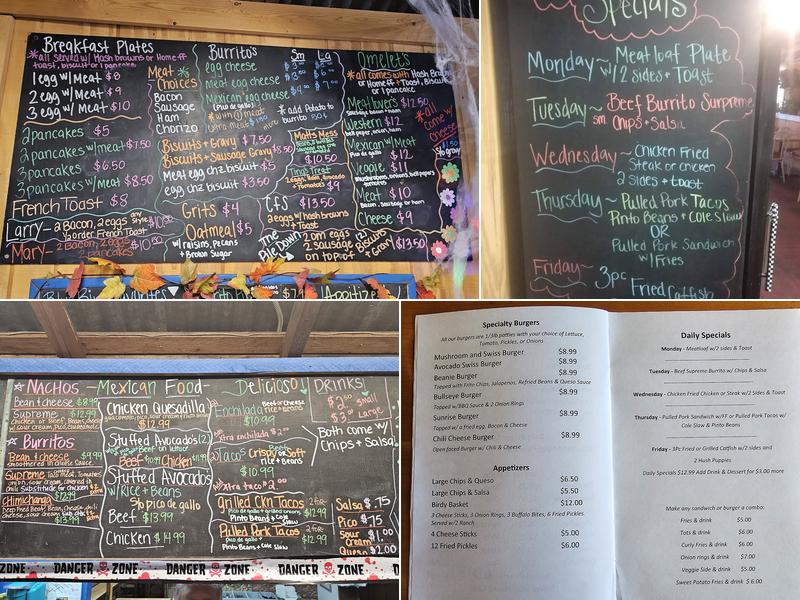 Breakfast Plates
*all served w/ Hash browns or Home ff
toast, biscuit or 1 pancake
1 egg w/ Meat $8
2 egg w/ Meat $9
3 egg w/ Meat $10
2 pancakes $5
2 pancakes w/meat $7.50
3 pancakes $6.50
3 pancakes w/meat $8.50
French Toast $8
Larry - 2 Bacon, 2 eggs any style
1/2 order French Toast
Mary - 2 Bacon, 2 eggs
2 pancakes
Meat *
Choices
Bacon
Sausage
Ham
Chorizo
Burritos
Sm La
egg cheese
meat egg cheese
Mexican egg cheese
(Pico de gallo)
*add Potato to
burrito
Biscuits + Gravy $7.50
Biscuits + Sausage Gravy $8.50
egg chz biscuit $5
Meat egg chz biscuit $3.50
Grits $4
Oatmeal $5
w/ raisins, Pecans
+ Brown Sugar
Matts Mess
$10.50
Tina's Treat
2 eggs, Bacon, Avocado
+ Tomatoes $9
CFS $13.50
2 eggs w/ hash browns
+ Toast
The
Pile Down
2 om eggs
2 sausage
on top of
(2)
Biscuits
+ Gravy
$13.50
Omelets
*all comes with Hash Brown
or Home ff + Toast, Biscuit
or 1 pancake
Meatlovers $12.50
Sausage, bacon, ham
Western $12
bell peper, onion, ham
Mexican w/Meat $12
Pico de gallo
Veggie $11
Mushrooms, onions, bell peppers
tomatoes
Meat $10
Bacon, Sausage or ham
Cheese $9
*all
come w/
cheese
$1.50
Sb gravy
Specials
Monday ~ Meatloaf Plate
w/ 2 sides + Toast
Tuesday ~ Beef Burrito Surpreme
sm Chips + Salsa
Wednesday ~ Chicken Fried
Steak or Chicken
2 Sides + toast
Thursday ~ Pulled Pork Tacos
Pinto Beans + Cole Slaw
OR
Pulled Pork Sandwich
w/ Fries
Friday ~ 3pc Fried Catfish
NACHOS - Mexican Food - Delicioso!
Bean + cheese $8.99
Supreme $12.99
Burritos
Bean + cheese $9.99
smoothered in cheese Sauce
Supreme
Chimichanga
$12.99
Chicken Quesadilla
$12.99
Stuffed Avocado's (2)
Beef $10.99 Chicken $11.99
Stuffed Avocados
w/ Rice + Beans
3 pico de gallo
Beef $13.99
Chicken $14.99
Enchilada
Beef or Cheese
rice + Beans
$10.99
xtra enchilada $2.00
(2) Tacos Crispy or Soft
Rice + Beans
$10.99
Xtra taco $2.00
grilled Ckn Tacos 2 for
Pinto Beans + Cole Slaw
$12.99
Pulled Pork Tacos 2 for
pico de gallo +
Pinto Beans + Cole Slaw
$12.99
DRINKS
small
$2.50
$3.00 Large
Both come w/
Chips + Salsa
Salsa $.75
Pico $.75
Sour
Cream
Queso $2.00
ZONE DANGER ZONE DANGER ZONE DANGER
Specialty Burgers
All our burgers are 1/3lb patties with your choice of Lettuce,
Tomato, Pickles, or Onions
Mushroom and Swiss Burger $8.99
Avocado Swiss Burger $8.99
Beanie Burger $8.99
Topped with Frito Chips, Jalapenos, Refried Beans & Queso Sauce
Bullseye Burger $8.99
Topped w/BBQ Sauce & 2 Onion Rings
Sunrise Burger $8.99
Topped w/ a fried egg, Bacon & Cheese
Chili Cheese Burger $8.99
Open faced Burger w/ Chili & Cheese
Appetizers
Large Chips & Queso $6.50
Large Chips & Salsa $5.50
Birdy Basket $12.00
3 Cheese Sticks, 3 Onion Rings, 3 Buffalo Bites, 6 Fried Pickles
Served w/2 Ranch
4 Cheese Sticks $5.00
12 Fried Pickles $6.00
Daily Specials
Monday - Meatloaf w/2 sides & Toast
Tuesday - Beef Supreme Burrito w/ Chips & Salsa
Wednesday - Chicken Fried Chicken or Steak w/2 Sides & Toast
Thursday - Pulled Pork Sandwich w/FF or Pulled Pork Tacos w/
Cole Slaw & Pinto Beans
Friday - 3Pc Fried or Grilled Catfish w/2 sides and
2 Hush Puppies
Daily Specials $12.99 Add Drink & Dessert for $3.00 more
Make any sandwich or burger a combo:
Fries & drink $5.00
Tots & drink $6.00
Curly Fries & drink $6.00
Onion rings & drink $7.00
Veggie Side & drink $5.00
Sweet Potato Fries & drink $6.00